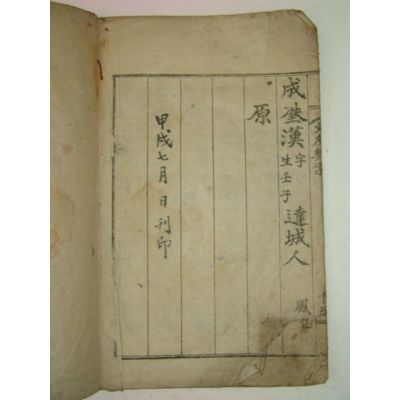 成漢字
生壬子
達城人
鳳
原
甲戌七月 日刊印